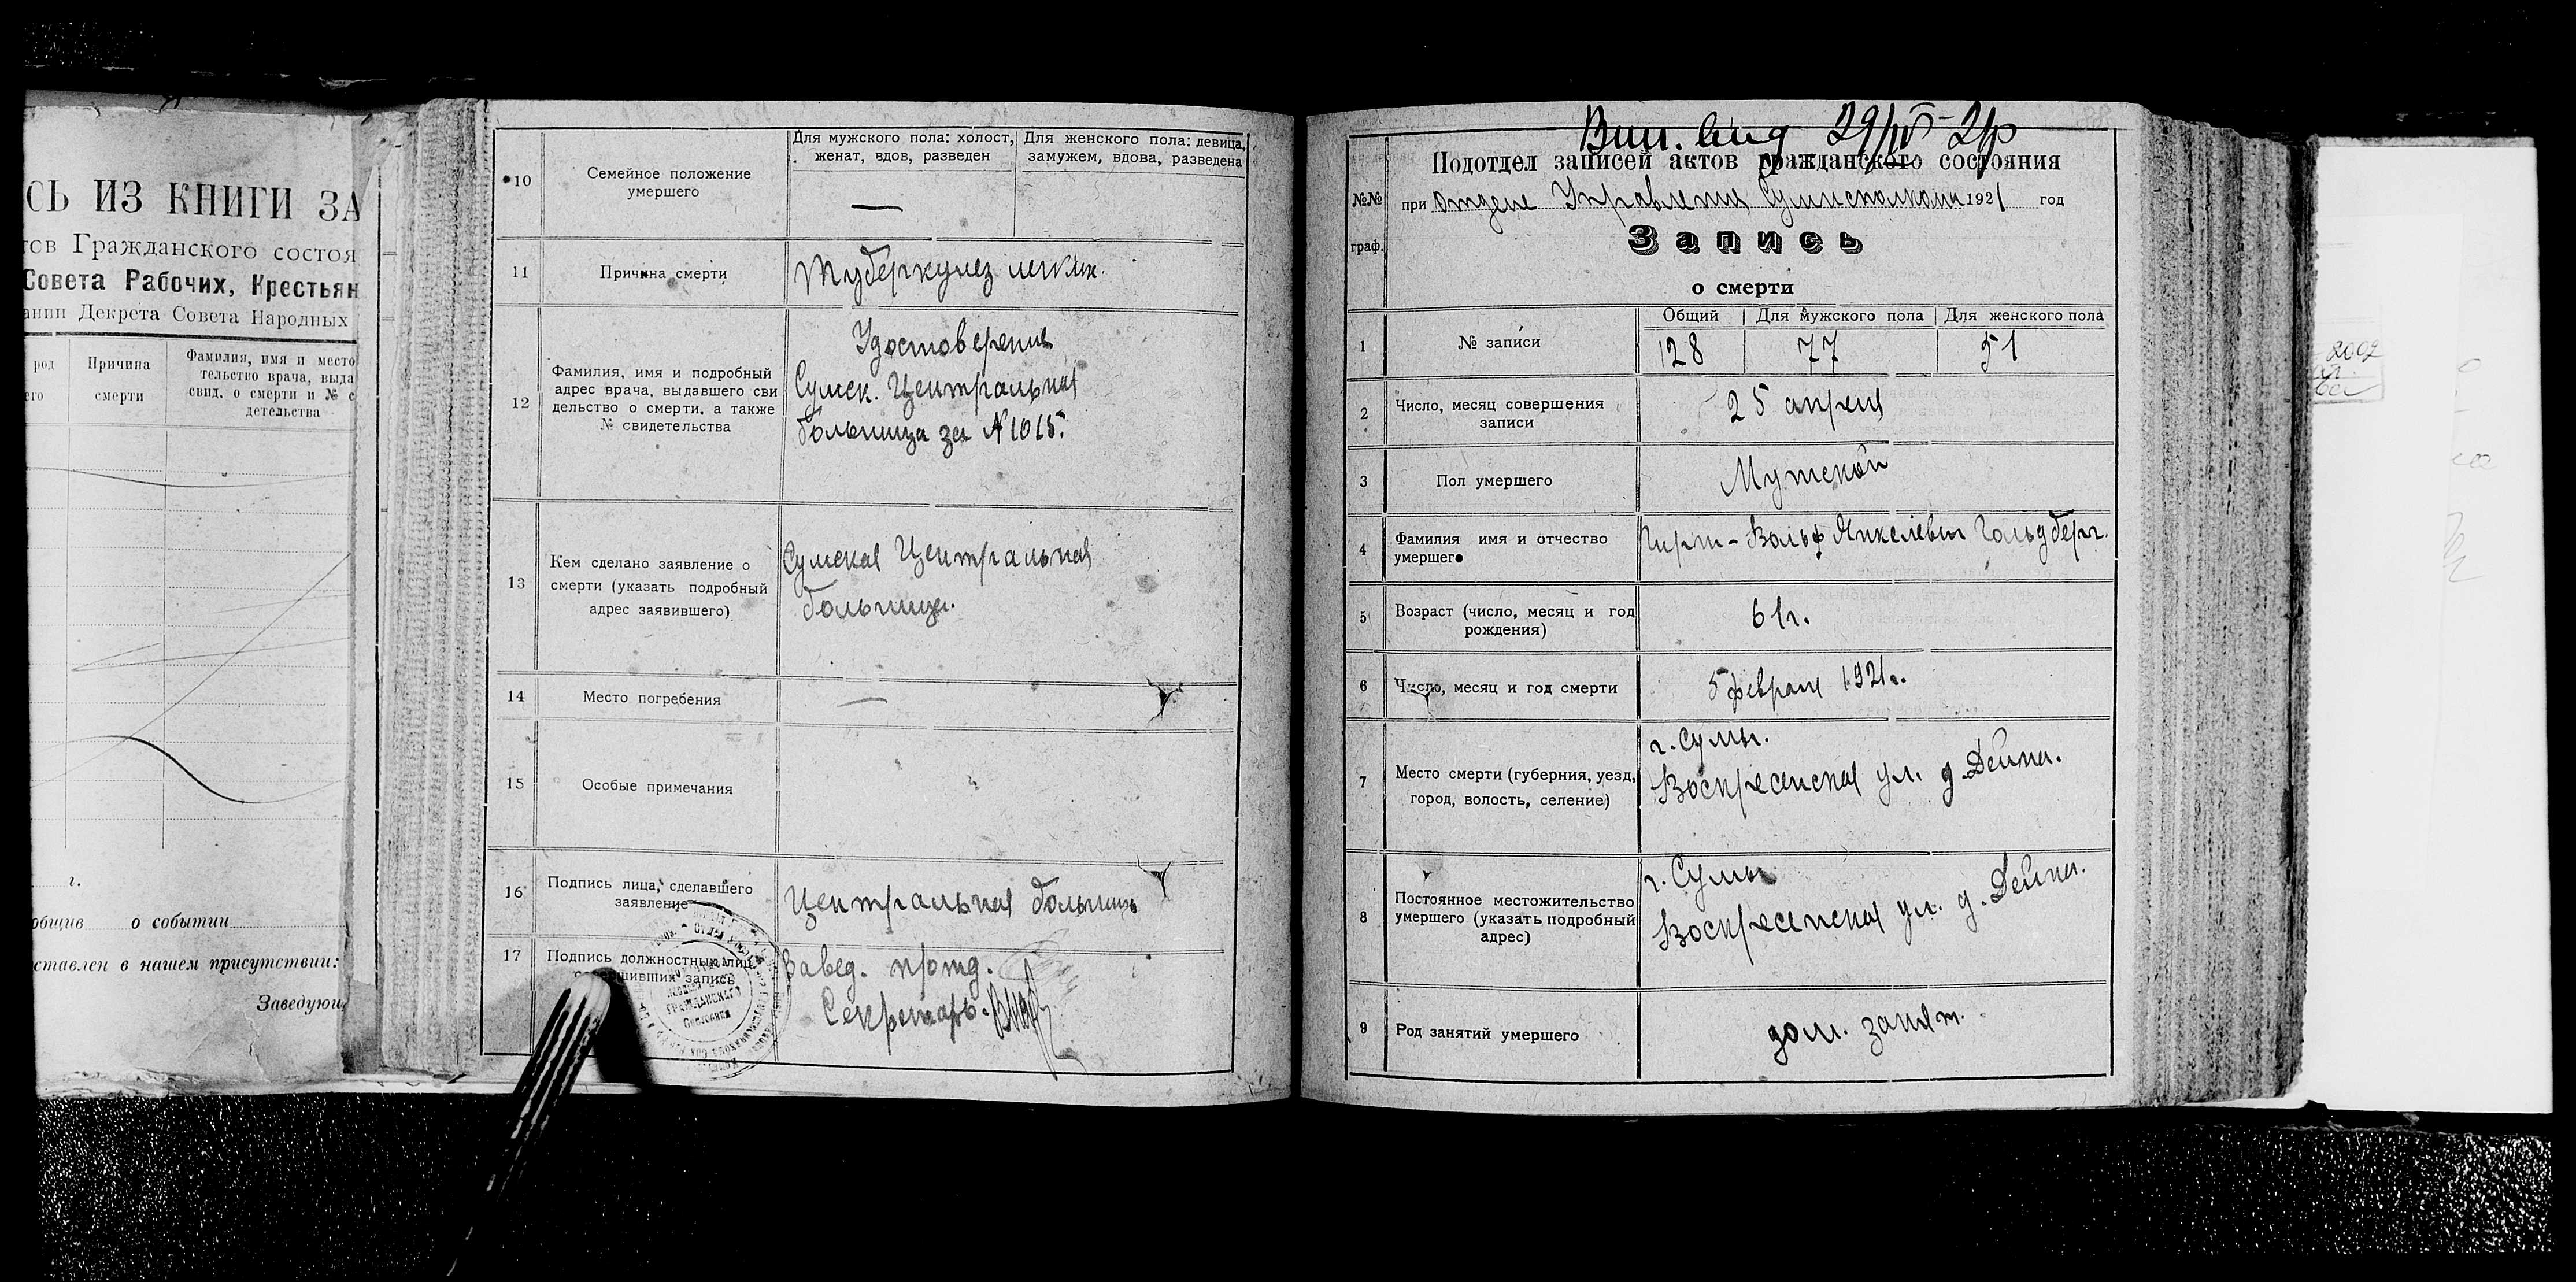 СЬ ИЗ КНИГИ ЗА
тов Гражданского состоя
Совета Рабочих, Крестьян
ании Декрета Совета Народных
род
его
Причина
смерти
Фамилия, имя и место
тельство врача, выда
свид. о смерти и № с
детельства
г.
общив о событии
ставлен в нашем присутствии:
Заведующ
10
Семейное положение
умершего
Для мужского пола: холост,
женат, вдов, разведен
Для женского пола: девица,
замужем, вдова, разведена
—
11
Причина смерти
Туберкулез легких.
12
Фамилия, имя и подробный
адрес врача, выдавшего сви
дельство о смерти, а также
№ свидетельства
Удостоверение
Сумск. Центральная
больница за №1015.
13
Кем сделано заявление о
смерти (указать подробный
адрес заявившего)
Сумская Центральная
больница.
14
Место погребения
—
15
Особые примечания
16
Подпись лица, сделавшего
заявление
Центральная больница
17
Подпись должностных лиц,
совершивших запись
Завед. п/отд.
Секретарь.
29/IV-21г
№№
граф.
Подотдел записей актов гражданского состояния
при отделе Управления Сумисполкома 1921 год
Запись
о смерти
1
№ записи
Общий
Для мужского пола
Для женского пола
128
77
51
2
Число, месяц совершения
записи
25 апреля
3
Пол умершего
Мужской
4
Фамилия имя и отчество
умершего
Гирш-Вольф Янкелевич Гольдберг.
5
Возраст (число, месяц и год
рождения)
61г.
6
Число, месяц и год смерти
5 февраля 1921г.
7
Место смерти (губерния, уезд,
город, волость, селение)
г. Сумы.
Воскресенская ул. д. Дейна.
8
Постоянное местожительство
умершего (указать подробный
адрес)
г. Сумы
Воскресенская ул. д. Дейна.
9
Род занятий умершего
дом. занят.
2002